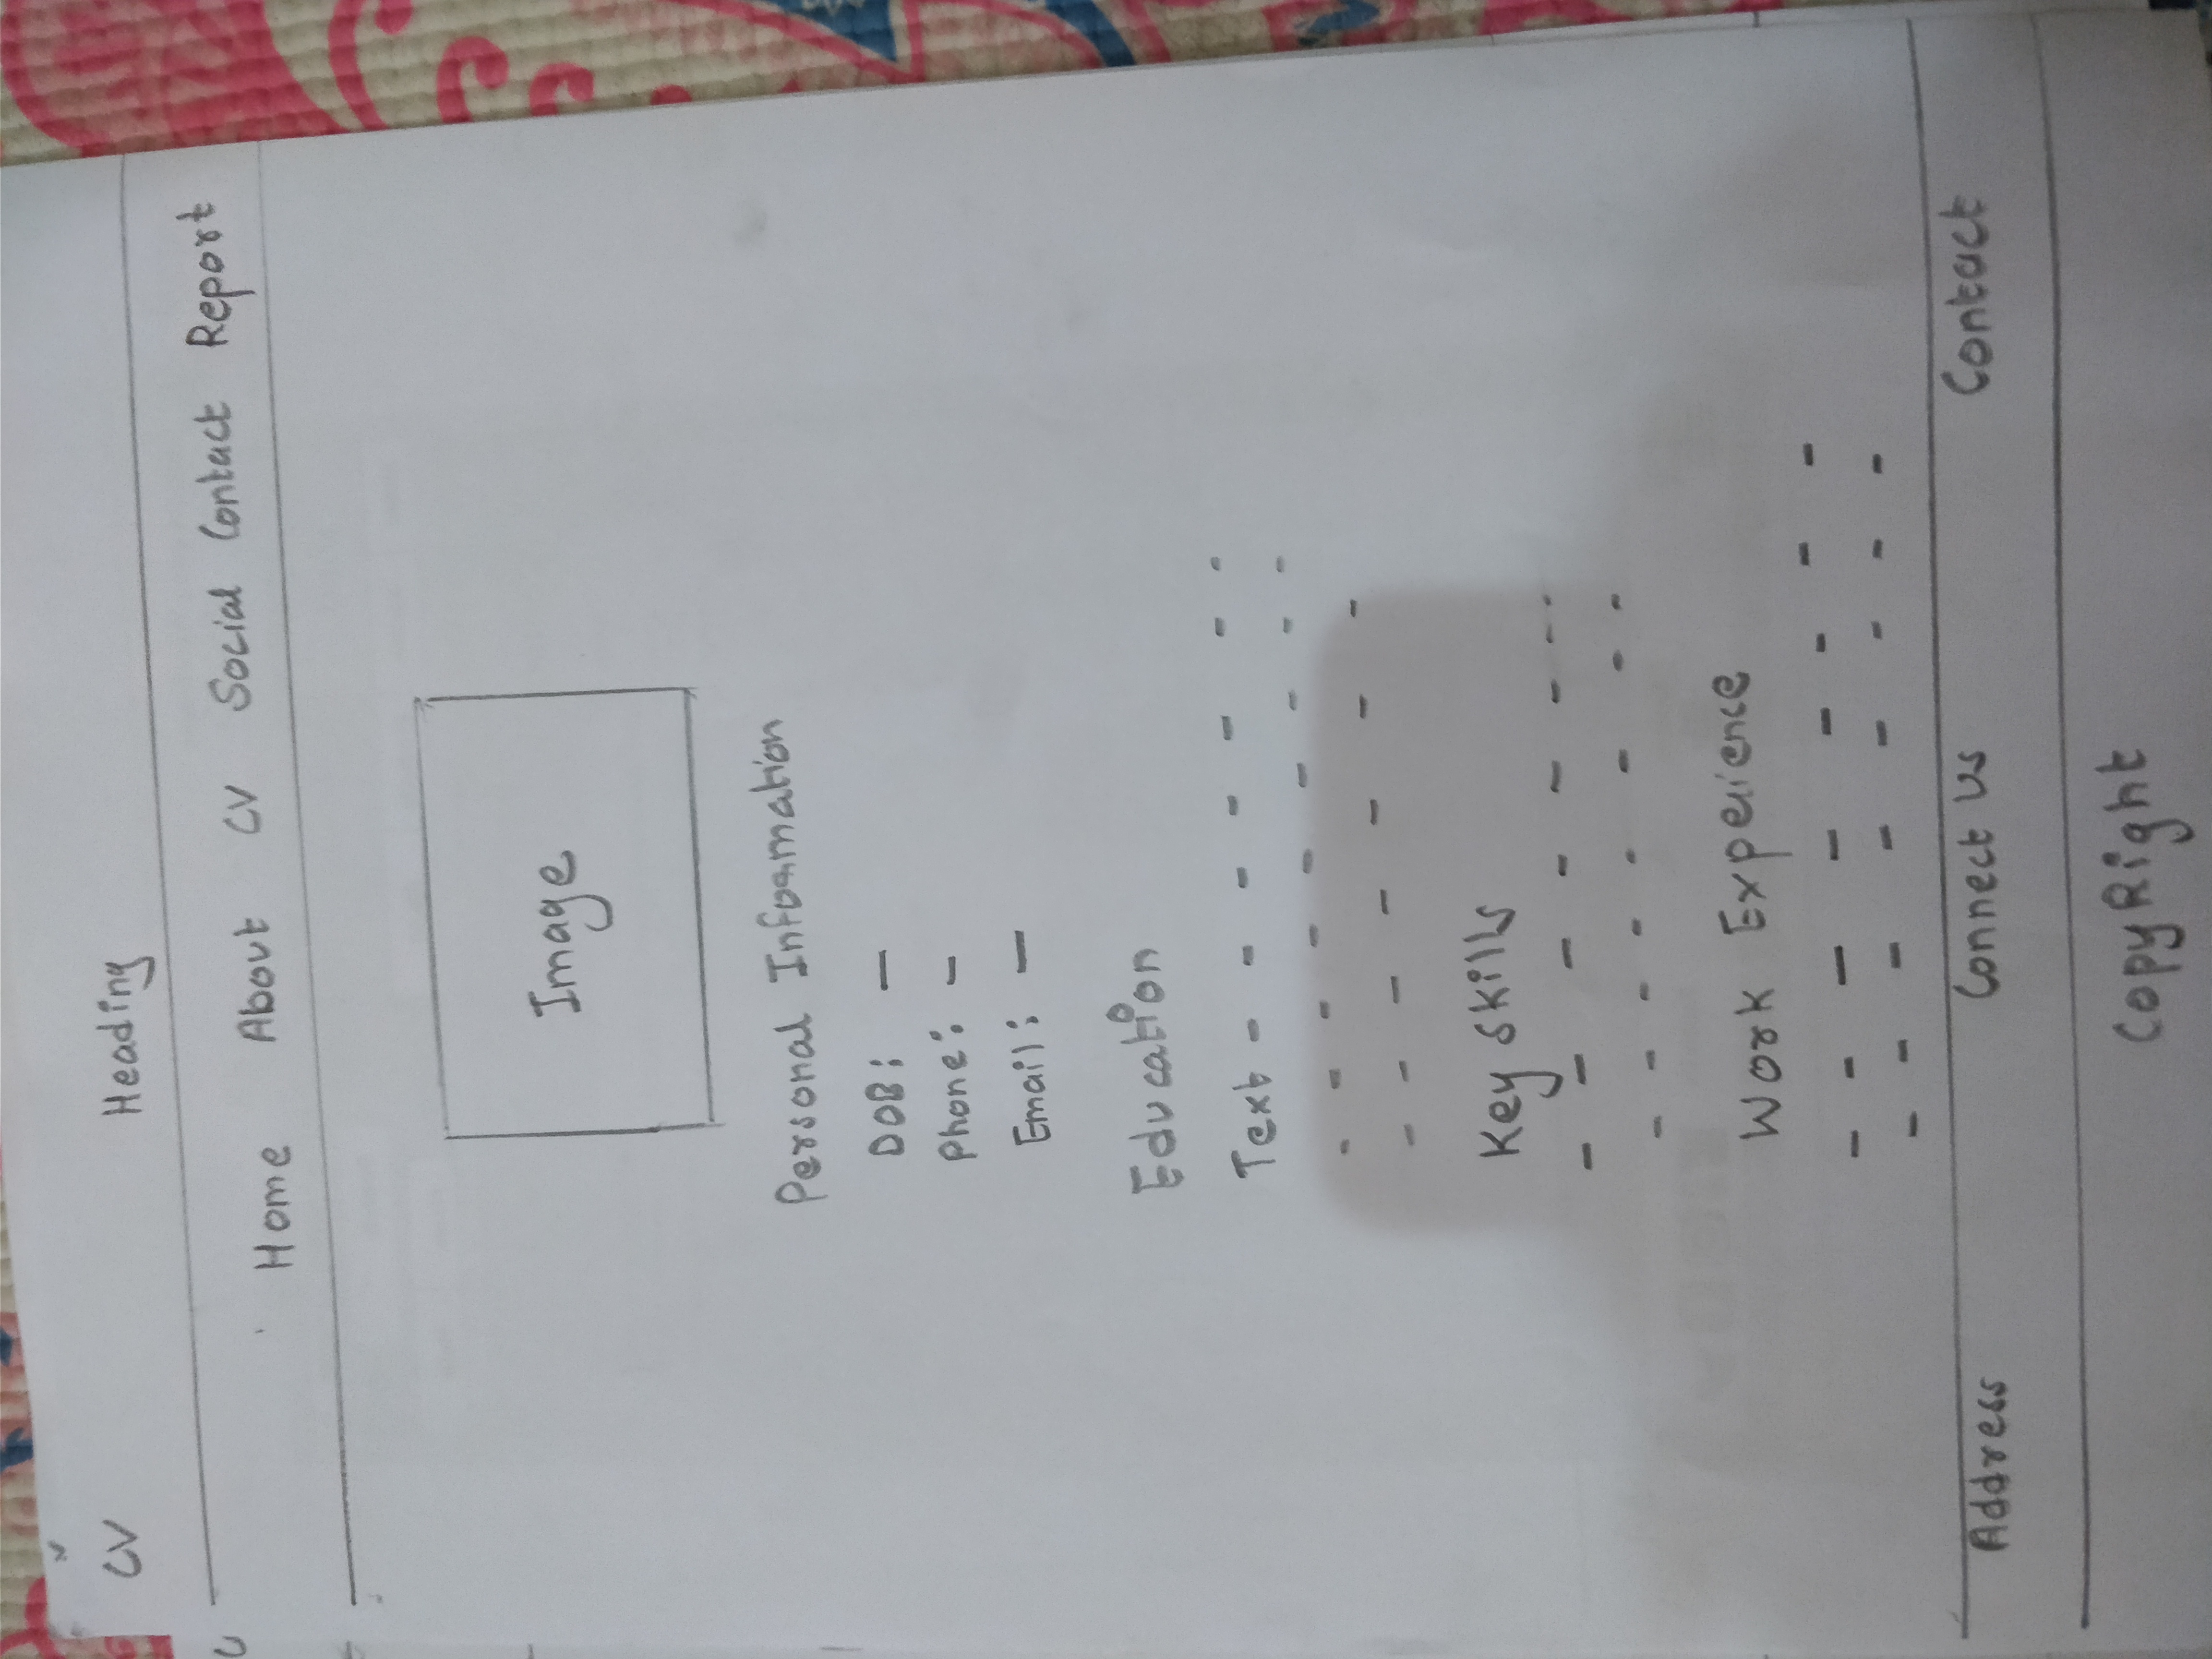 CV Heading
Home About CV Social Contact Report
Image
Personal Information
DOB: —
Phone: -
Email: —
Education
Text - - - - - - -
- - - - - - - - -
- - - - - - - -
Key skills
- - - - - - - -
- - - - - - - -
Work Experience
- - - - - - - -
- - - - - - - -
Address Connect Us Contact
CopyRight